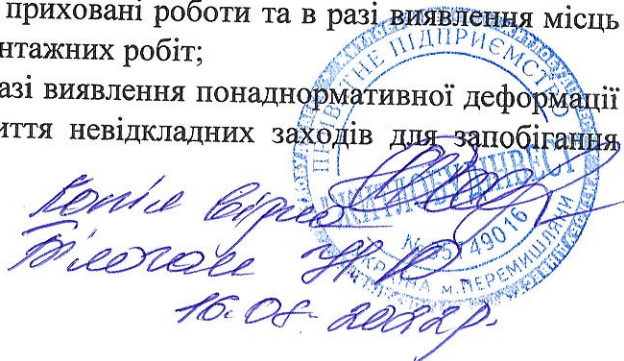 приховані роботи та в разі виявлення місць
нтажних робіт;
азі виявлення понаднормативної деформації
иття невідкладних заходів для запобігання
ПРИВАТНЕ ПІДПРИЄМСТВО
ЖИТЛОБУДІНВЕСТ
УКРАЇНА м. ПЕРЕМИШЛЯНИ
Копія вірна
16.08.2022р.